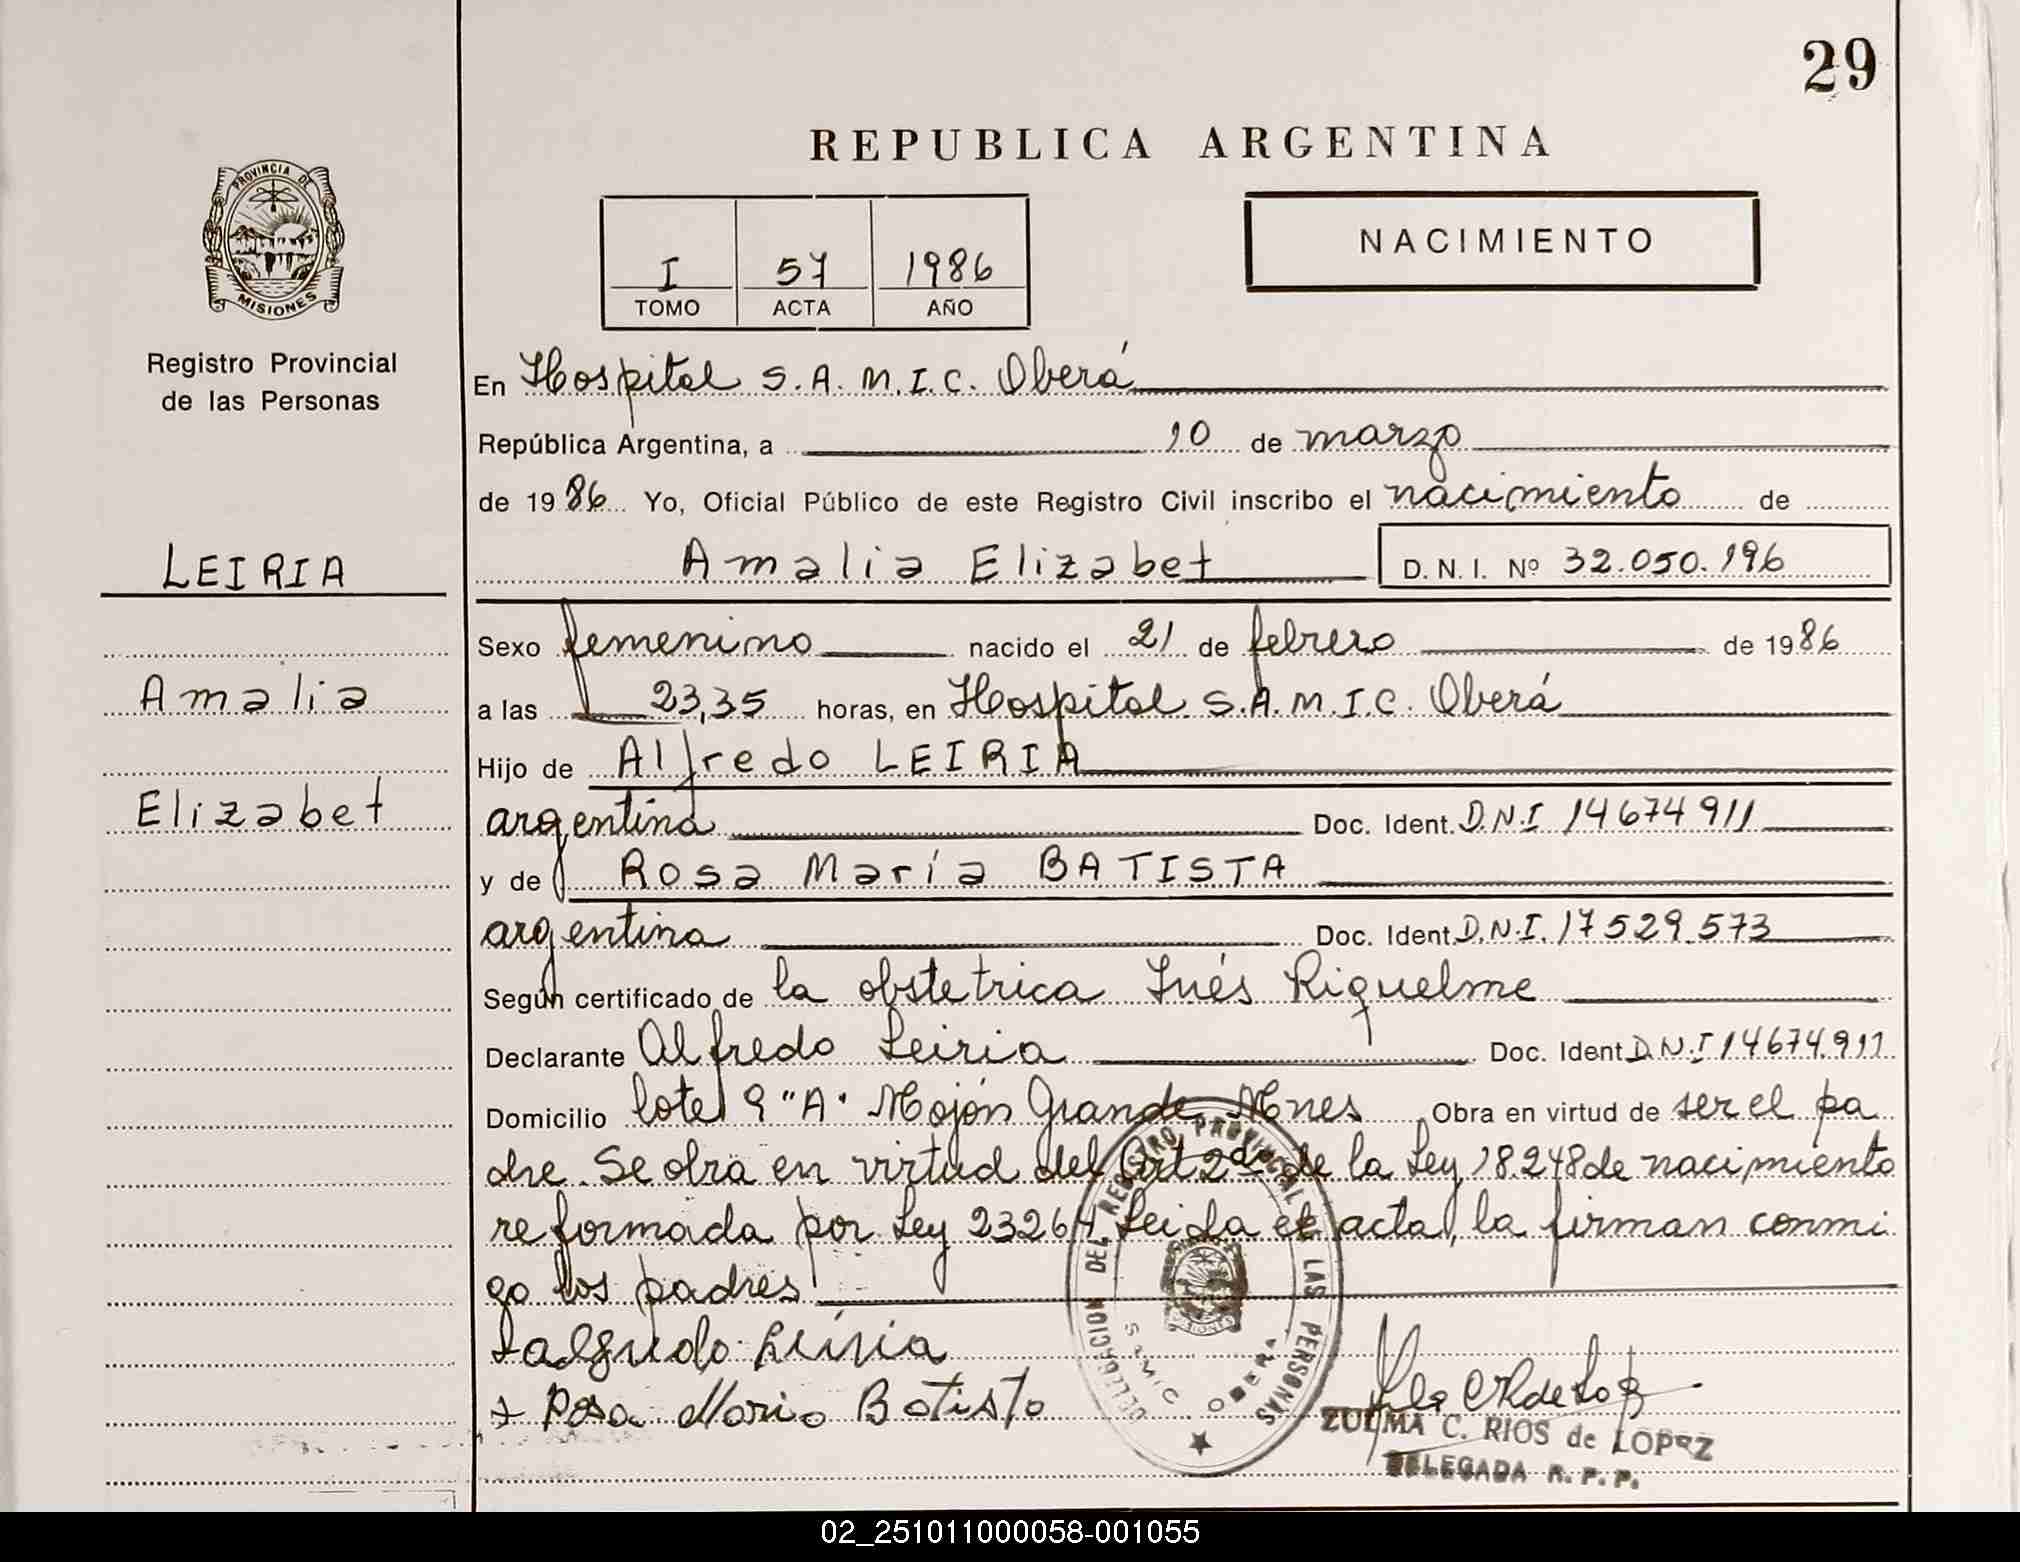 29
REPUBLICA ARGENTINA
PROVINCIA DE
MISIONES
Registro Provincial
de las Personas
I 57 1986
TOMO ACTA AÑO
NACIMIENTO
En Hospital S.A.M.I.C. Oberá
República Argentina, a 10 de marzo
de 1986 Yo, Oficial Público de este Registro Civil inscribo el nacimiento de
LEIRIA
Amalia Elizabet D.N.I. Nº 32.050.196
Sexo femenino nacido el 21 de febrero de 1986
Amalia
a las 23,35 horas, en Hospital S.A.M.I.C. Oberá
Hijo de Alfredo LEIRIA
Elizabet
argentina Doc. Ident. D.N.I 14674911
y de Rosa María BATISTA
argentina Doc. Ident. D.N.I. 17529.573
Según certificado de la obstetrica Inés Riquelme
Declarante Alfredo Leiria Doc. Ident. D.N.I 14674.911
Domicilio lote 9 "A" Mojón Grande Mnes Obra en virtud de ser el pa
dre. Se obra en virtud del Art 2do de la Ley 18.248 de nacimiento
reformada por Ley 23264 Leida el acta, la firman conmi
go los padres
+ alfredo Leiria
+ Rosa Maria Batista
DELEGACION DEL REGISTRO PROVINCIAL DE LAS PERSONAS
SAMIC OBERA
ZULMA C. RIOS de LOPEZ
DELEGADA R.P.P.
02_251011000058-001055